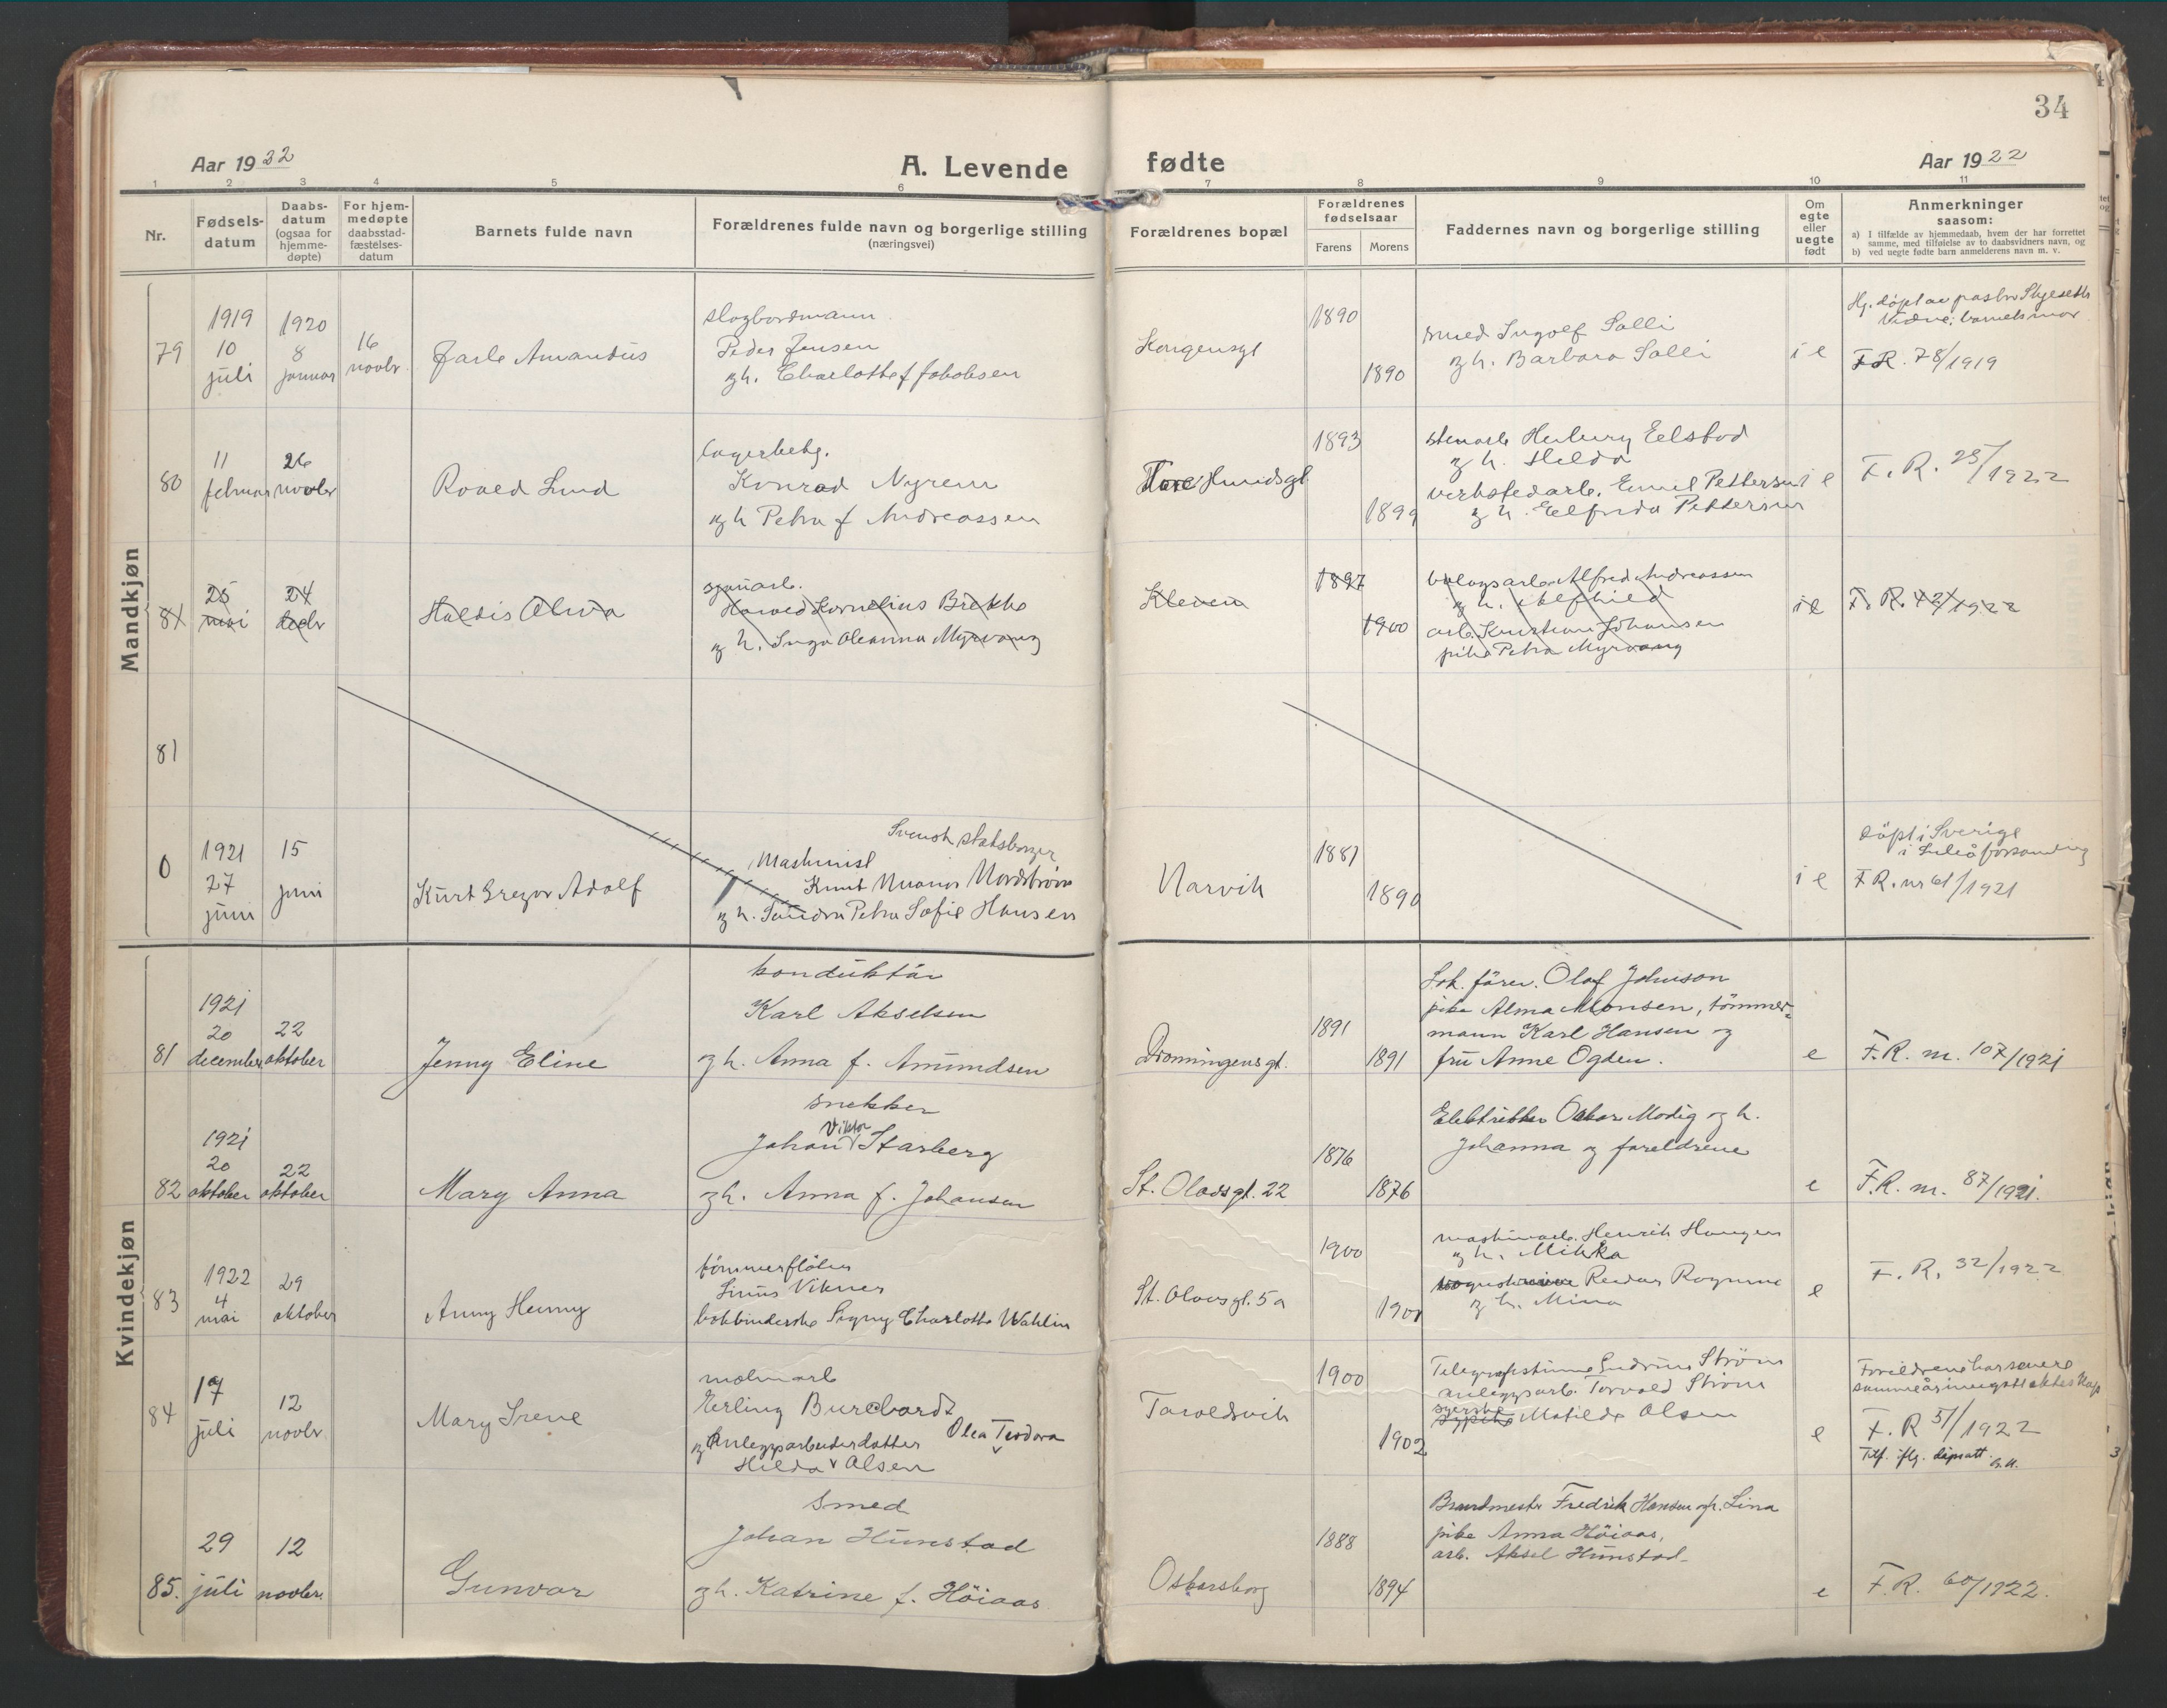 34
Aar 1922
A. Levende fødte
Aar 1922
1 2 3 4 5 6 7 8 9 10 11
Nr.
Fødsels-
datum
Daabs-
datum
(ogsaa for
hjemme-
døpte)
For hjem-
medøpte
daabsstad-
fæstelses-
datum
Barnets fulde navn
Forældrenes fulde navn og borgerlige stilling
(næringsvei)
Forældrenes bopæl
Forældrenes
fødselsaar
Farens
Morens
Faddernes navn og borgerlige stilling
Om
egte
eller
uegte
født
Anmerkninger
saasom:
a) I tilfælde av hjemmedaab, hvem der har forrettet
samme, med tilføielse av to daabsvidners navn, og
b) ved uegte fødte barn anmelderens navn m. v.
Mandkjøn
79
1919
10
juli
1920
8
januar
16
novbr.
Jarle Amandus
Peder Jensen
og h. Charlotte f Jakobsen
Kongensgt
1890
1890
smed Ingolf Salli
og h. Barbara Salli
i e
Hj. døpt av pastor
Vidne: barnets mor
F.R. 78/1919
80
11
februar
26
novbr
Roald Lund
lagerbetj.
Konrad Nyrem
og h Petra f Andreassen
Tore Hundsgt
1893
1899
og h. Hilda
verkstedarb. Emil Pettersen
og h. Elfrida Pettersen
i e
F. R. 23/1922
81
25
mai
24
decbr
Haldis Alva
Harald Kornelius Brekke
og h. Inga Oleanna Myrvang
Kleven
1897
1900
Alfred Andreassen
og h. Alfhild
arb. Kristian Johansen
pike Petra Myrvang
i e
F. R. 42/1922
81
0
1921
27
juni
15
juni
Kurt Gregor Adolf
Svensk statsborger
Maskinist
Knut Nordstrøm
og h. Sandra Petra Sofie Hansen
Narvik
1881
1890
i e
døpt i Sverige
i Luleå forsamling
F R. nr 61/1921
Kvindekjøn
81
1921
20
december
22
oktober
Jenny Eline
konduktør
Karl Akselsen
og h. Anna f. Amundsen
Dronningensgt.
1891
1891
Lok. fører. Olaf Johnson
pike Alma Monsen, tømmer-
mann Karl Hansen og
fru Anne Ogden.
e
F.R. nr. 107/1921
82
1921
20
oktober
22
oktober
Mary Anna
snekker
Johan Viktor Starberg
og h. Anna f. Johansen
St. Olavsgt. 22
1876
1876
Elektriker Oskar Modig og h.
Johanna og foreldrene
e
F.R. nr. 87/1921.
83
1922
4
mai
29
oktober
Anny Henny
tømmerfløter
Linus Vikner
bokbinderske Signy Charlotte Wahlin
St. Olavsgt. 5a
1900
1901
maskinarb. Henrik Haugen
og h. Mikka
Reidar Rognmo
og h. Mina
e
F. R. 32/1922
84
17
juli
12
novbr.
Mary Irene
malmarb
Erling Burchardt
og Anleggsarbeiderdatter Olea Teodora
Hilda Olsen
Taraldsvik
1900
1902
Telegrafistinne Gudrun Strøm
anleggsarb. Torvald Strøm
syerske Matilde Olsen
e
Foreldrene har senere
F. R 51/1922
Tilf. iflg. dåpsatt.
85.
29
juli
12
novbr.
Gunvor
Smed
Johan Hunstad
og h. Katrine f. Höiaas
Oskarsborg
1888
1894
Brandmester Fredrik Hansen og h. Lina
pike Anna Höiaas,
arb. Aksel Hunstad
e
F.R. 60/1922.